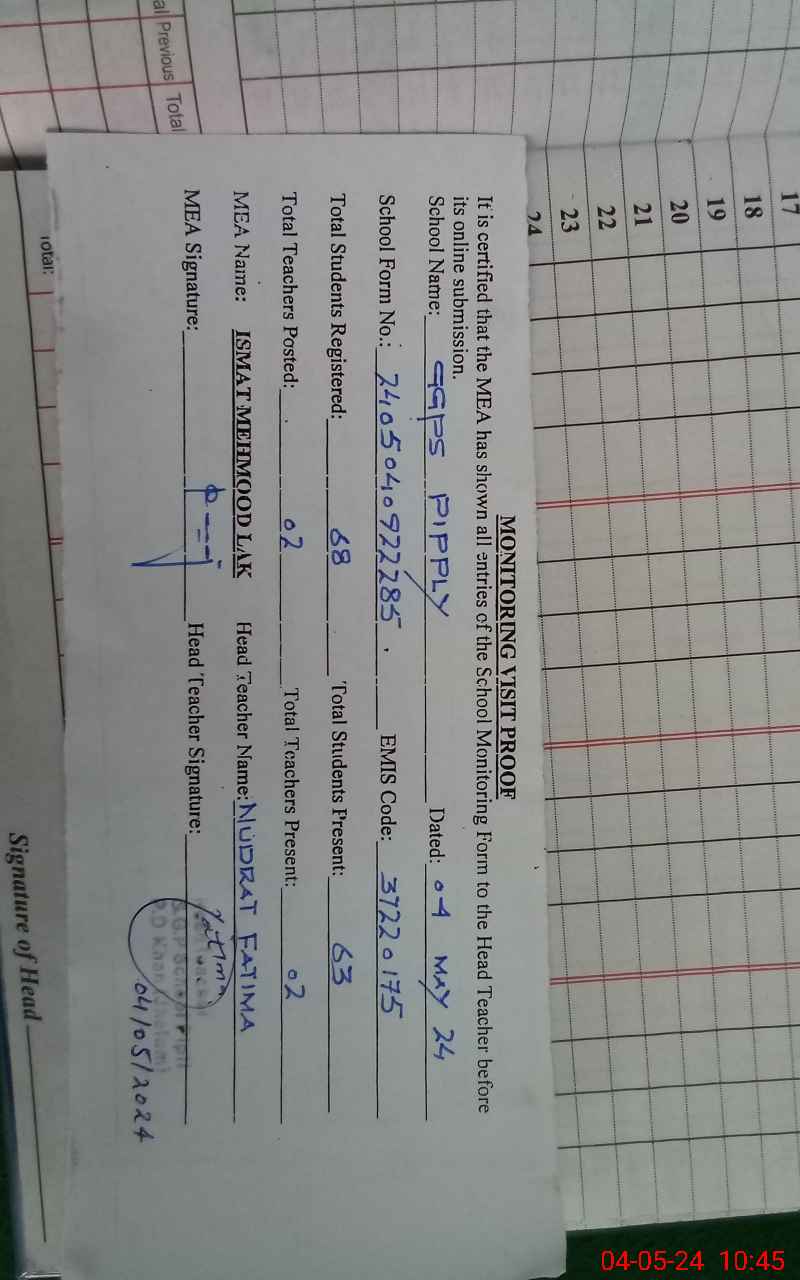 al Previous Total
17
18
19
20
21
22
23
24
MONITORING VISIT PROOF
It is certified that the MEA has shown all entries of the School Monitoring Form to the Head Teacher before
its online submission.
School Name: GGPS PIPPLY Dated: 04 MAY 24
School Form No.: 2405040922285 EMIS Code: 37220175
Total Students Registered: 68 Total Students Present: 63
Total Teachers Posted: 02 Total Teachers Present: 02
MEA Name: ISMAT MEHMOOD LAK Head Teacher Name: NUDRAT FATIMA
MEA Signature: Head Teacher Signature: Fatima
04/05/2024
Total:
Signature of Head
04-05-24 10:45